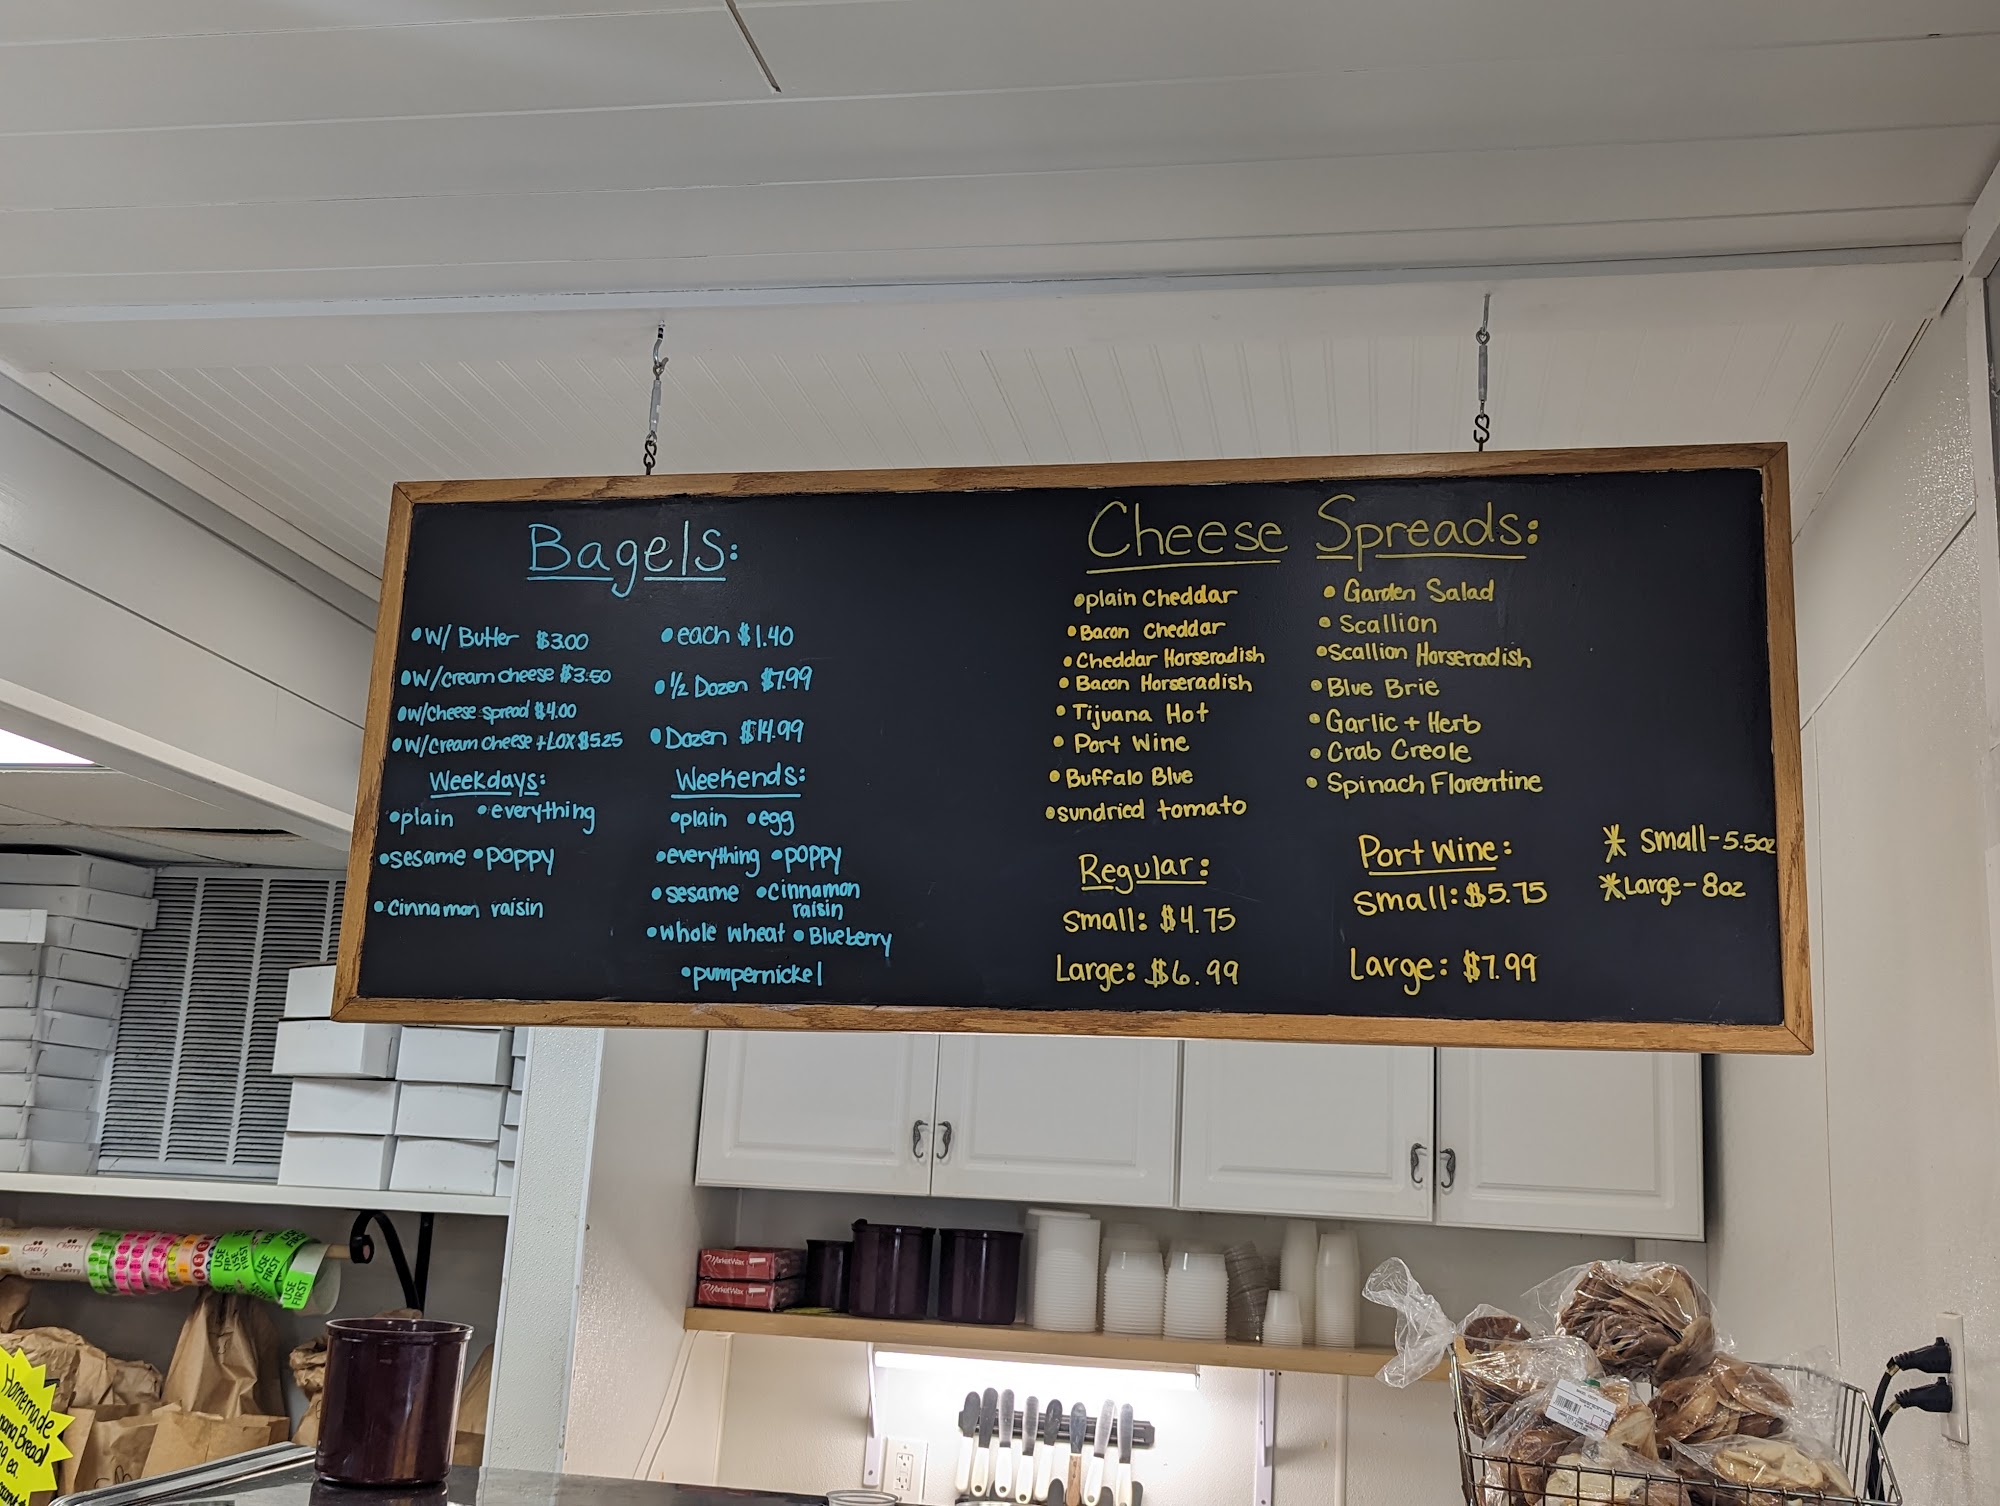 Bagels:
•W/ Butter $3.00
•W/cream cheese $3.50
•W/Cheese spread $4.00
•W/cream cheese + LOX $5.25
•each $1.40
•1/2 Dozen $7.99
•Dozen $14.99
Weekdays:
•plain •everything
•sesame •poppy
•Cinnamon raisin
Weekends:
•plain •egg
•everything •poppy
•sesame •cinnamon
raisin
•whole wheat •Blueberry
•pumpernickel
Cheese Spreads:
•plain Cheddar
•Bacon Cheddar
•Cheddar Horseradish
•Bacon Horseradish
•Tijuana Hot
•Port Wine
•Buffalo Blue
•sundried tomato
•Garden Salad
•Scallion
•Scallion Horseradish
•Blue Brie
•Garlic + Herb
•Crab Creole
•Spinach Florentine
Regular:
Small: $4.75
Large: $6.99
Port Wine:
Small: $5.75
Large: $7.99
* Small-5.5oz
*Large-8oz
Cherry
Cherry
USE FIRST
USE FIRST
USE FIRST
MarketWax
MarketWax
Homemade
Bread
ea.